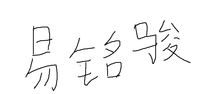 易铭骏